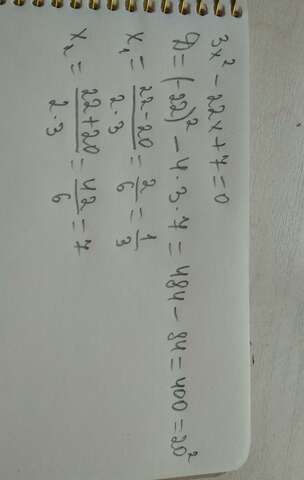 3x² - 22x + 7 = 0
D = (-22)² - 4·3·7 = 484 - 84 = 400 = 20²
x₁ = (22-20)/(2·3) = 2/6 = 1/3
x₂ = (22+20)/(2·3) = 42/6 = 7